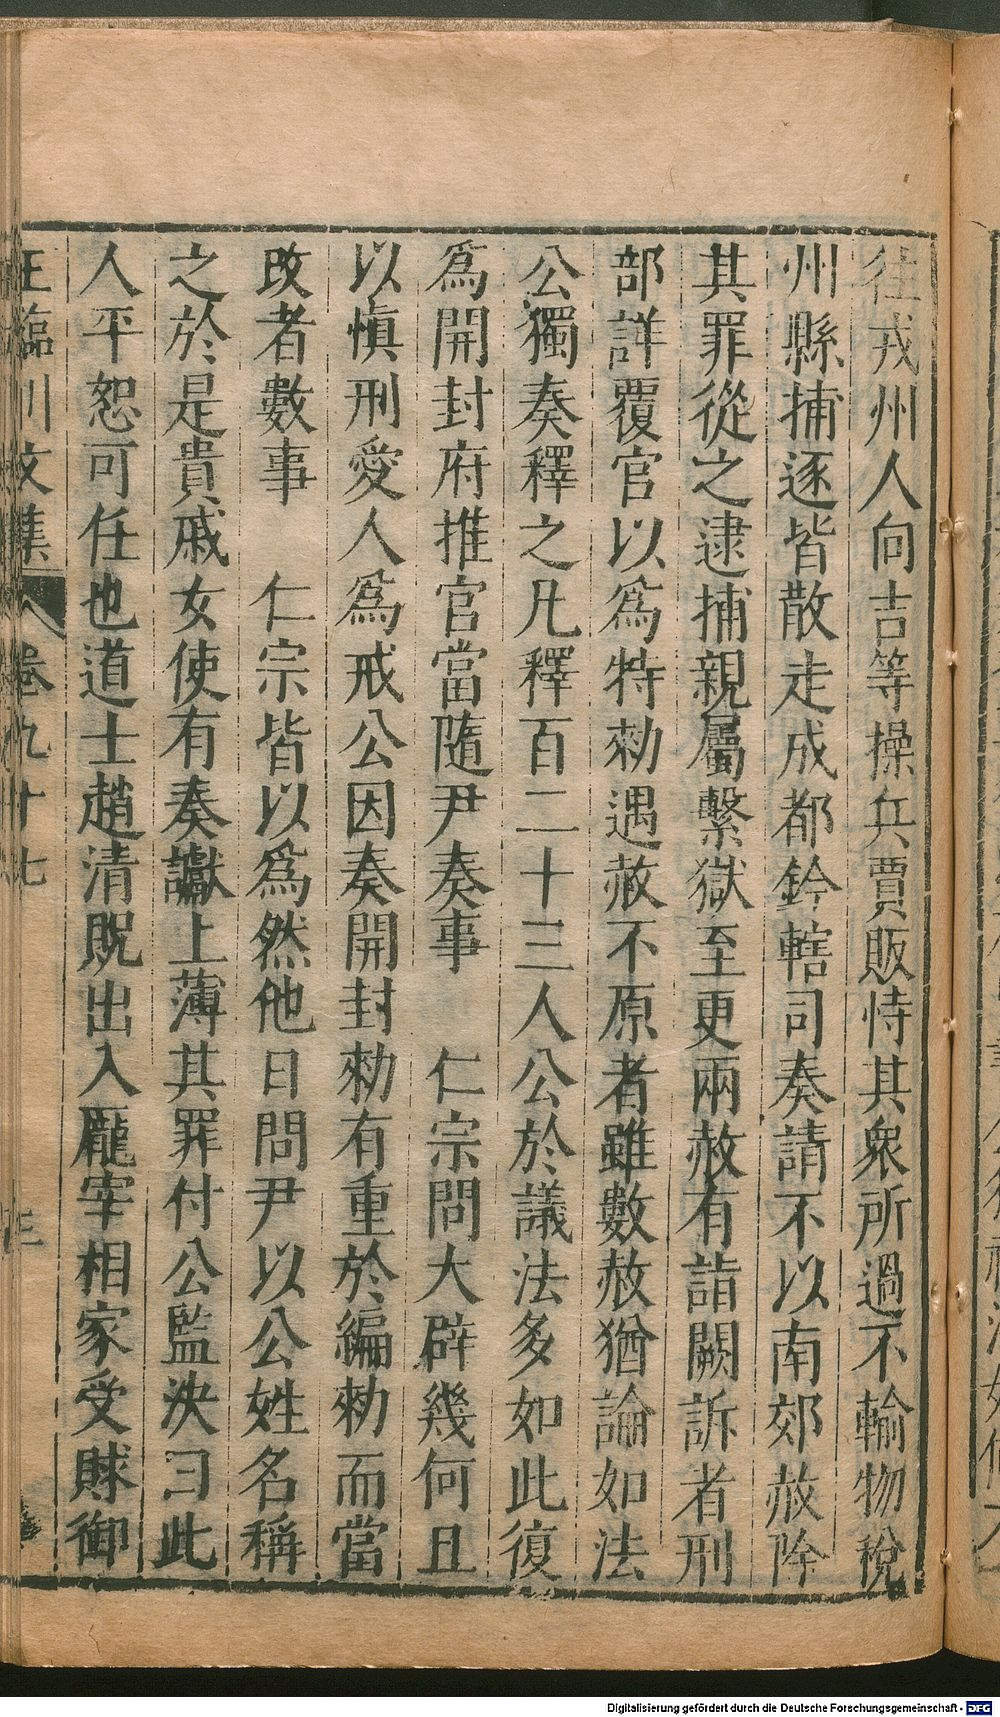 往戎州人向吉等操兵賈販恃其衆所過不輸物稅
州縣捕逐皆散走成都鈐轄司奏請不以南郊赦除
其罪從之逮捕親屬繫獄至更兩赦有詣闕訴者刑
部詳覆官以爲特勑遇赦不原者雖數赦猶論如法
公獨奏釋之凡釋百二十三人公於議法多如此復
爲開封府推官當隨尹奏事　仁宗問大辟幾何且
以愼刑愛人爲戒公因奏開封勑有重於編勑而當
改者數事　仁宗皆以爲然他日問尹以公姓名稱
之於是貴戚女使有奏讞上薄其罪付公監決曰此
人平恕可任也道士趙清貺出入龐宰相家受賕御
王臨川文集　卷九十七　三
Digitalisierung gefördert durch die Deutsche Forschungsgemeinschaft - DFG